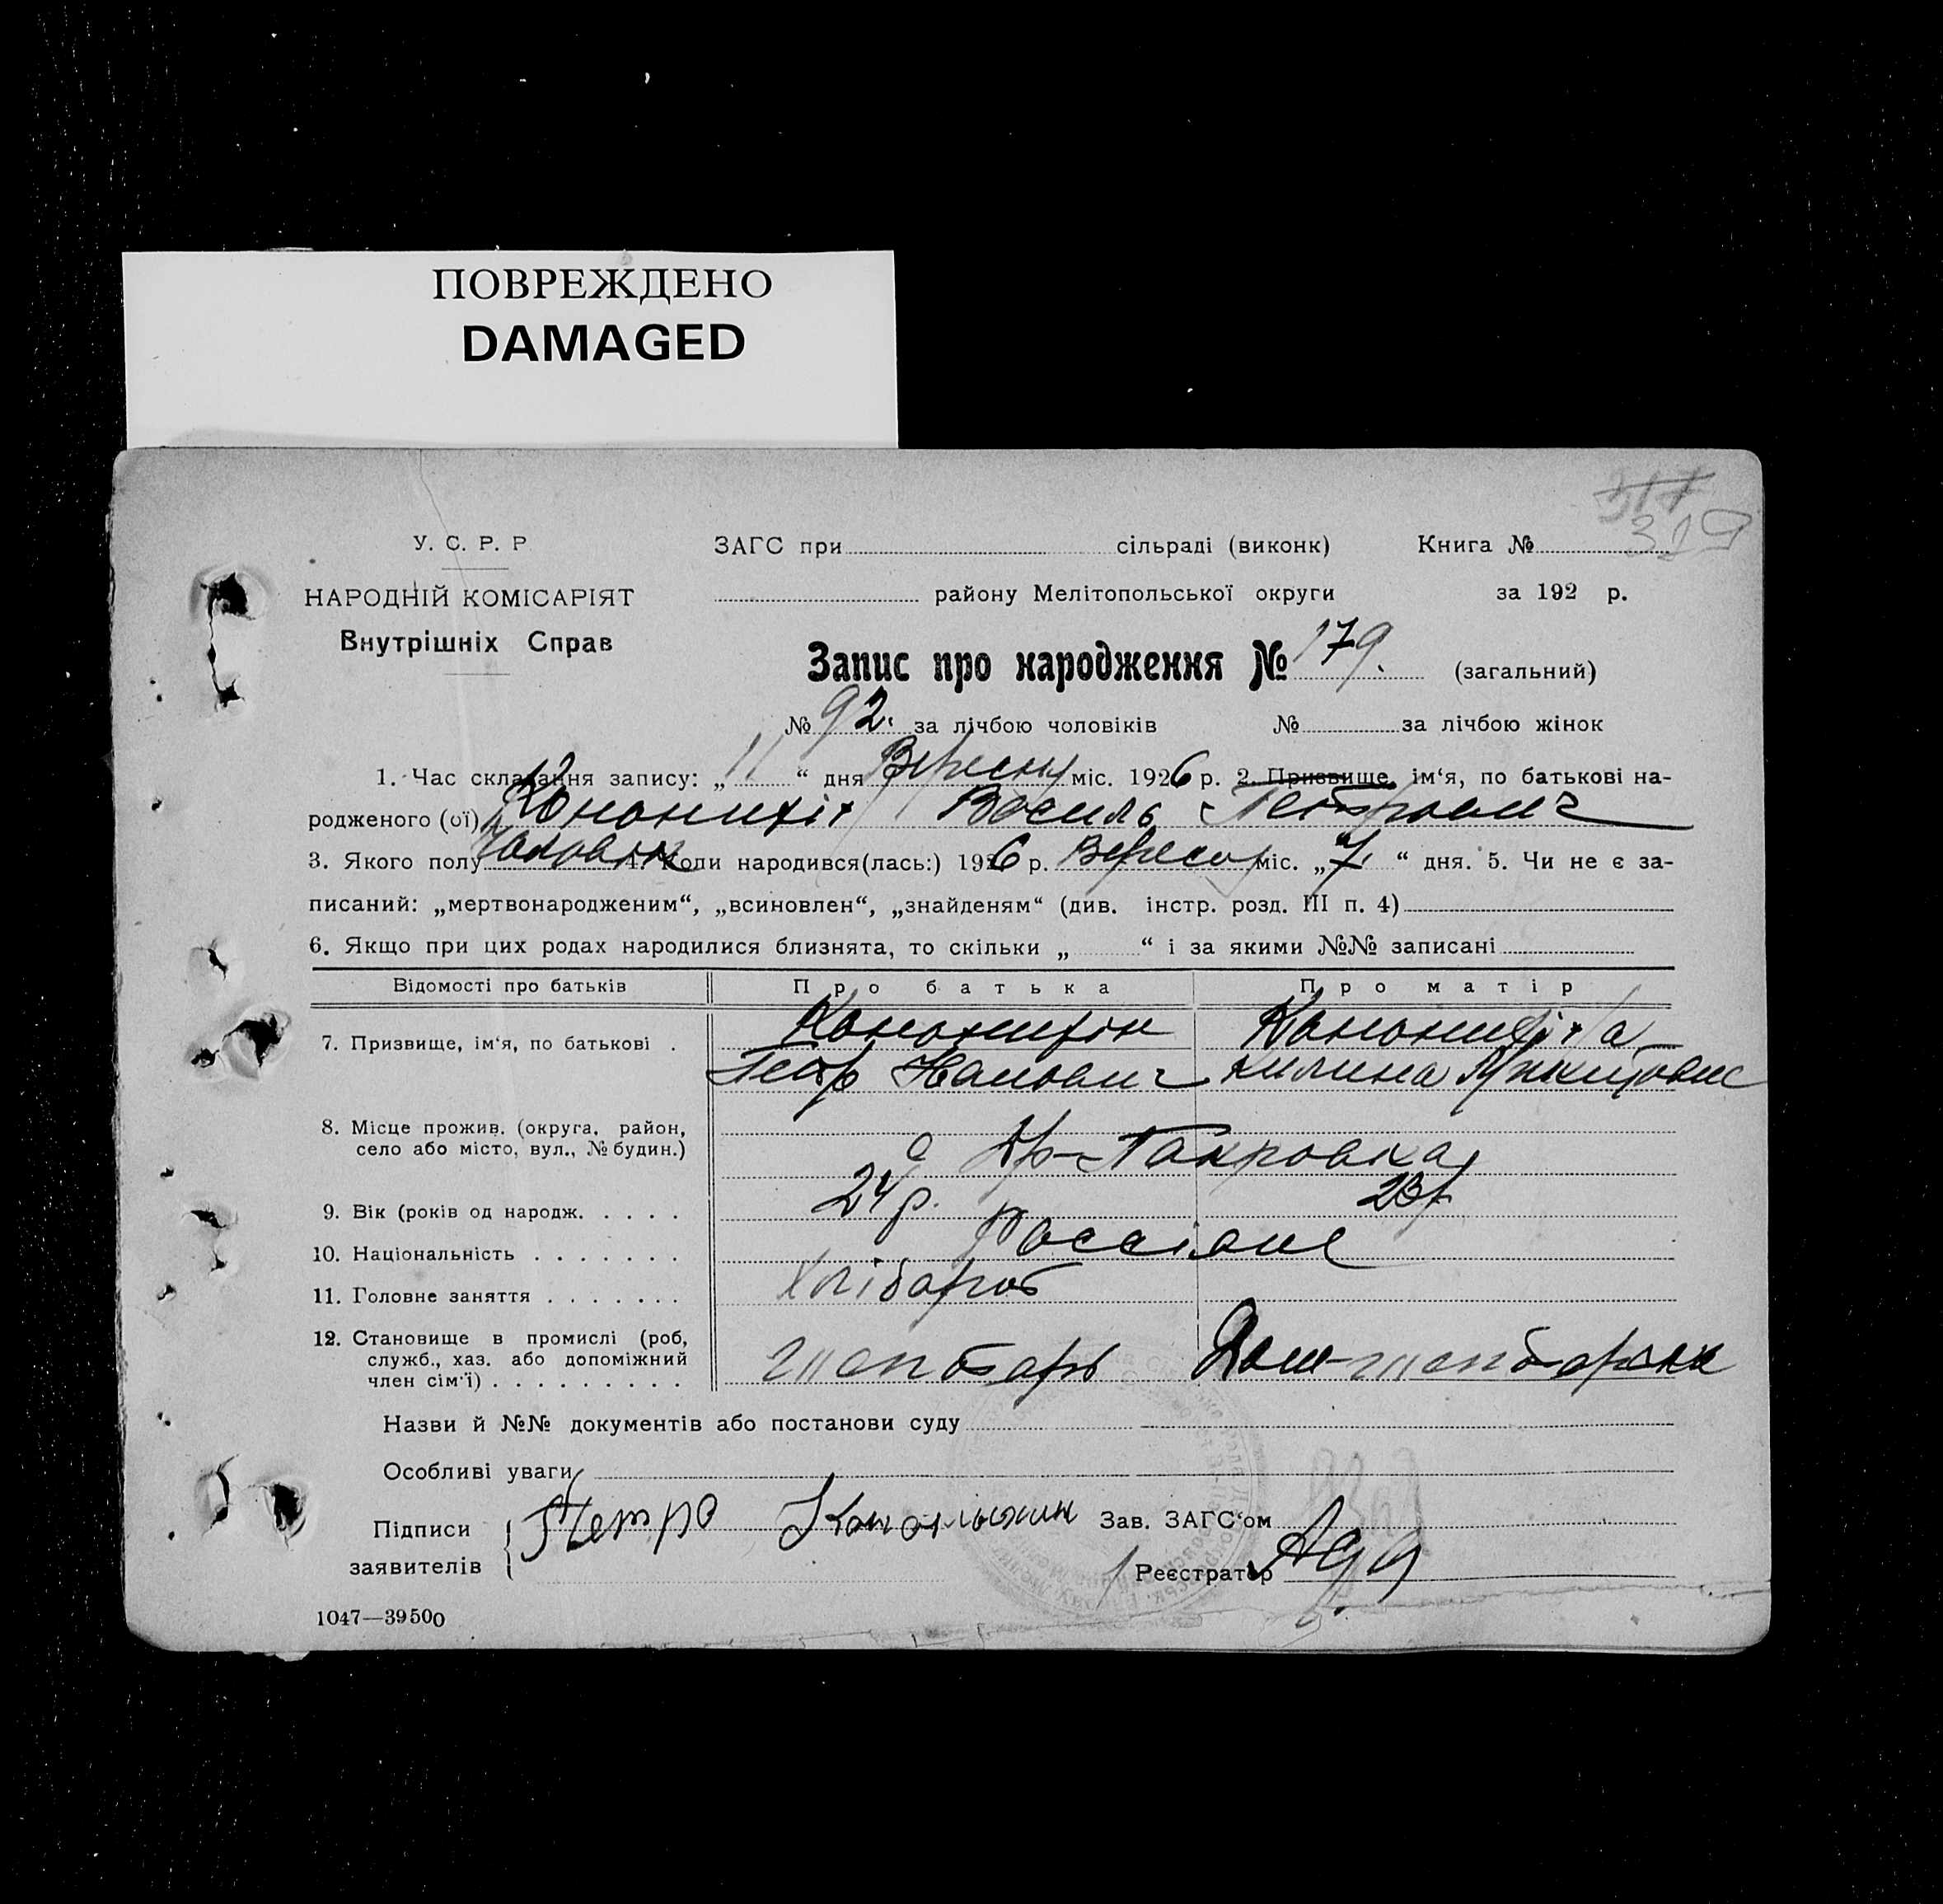 ПОВРЕЖДЕНО
DAMAGED
317
319
У. С. Р. Р
НАРОДНІЙ КОМІСАРІЯТ
Внутрішніх Справ
ЗАГС при сільраді (виконк) Книга №
району Мелітопольської округи за 192 р.
Запис про народження № 179. (загальний)
№ 92. за лічбою чоловіків № за лічбою жінок
1. Час складання запису: „ 11 “ дня Вересня міс. 1926 р. 2. Призвище, ім‘я, по батькові на-
родженого (ої) Кононихін Василь Петрович
3. Якого полу Чоловік 4. Коли народився(лась:) 1926 р. Вересня міс. „ 7. “ дня. 5. Чи не є за-
писаний: „мертвонародженим“, „всиновлен“, „знайденям“ (див. інстр. розд. III п. 4)
6. Якщо при цих родах народилися близнята, то скільки „ “ і за якими №№ записані
Відомості про батьків Про батька Про матір
7. Призвище, ім‘я, по батькові . Кононихін Кононихіна
Петр Иванович Килина
8. Місце прожив. (округа, район,
село або місто, вул., № будин.) с
9. Вік (років од народж. . . . . 24 р. 23 р
10. Національність . . . . . . . Россіяне
11. Головне заняття . . . . . . . Хлібороб
12. Становище в промислі (роб,
служб., хаз. або допоміжний
член сім‘ї) . . . . . . . . .
Назви й №№ документів або постанови суду
Особливі уваги
Підписи Петро Зав. ЗАГС‘ом
заявителів Реєстратор
1047—39500